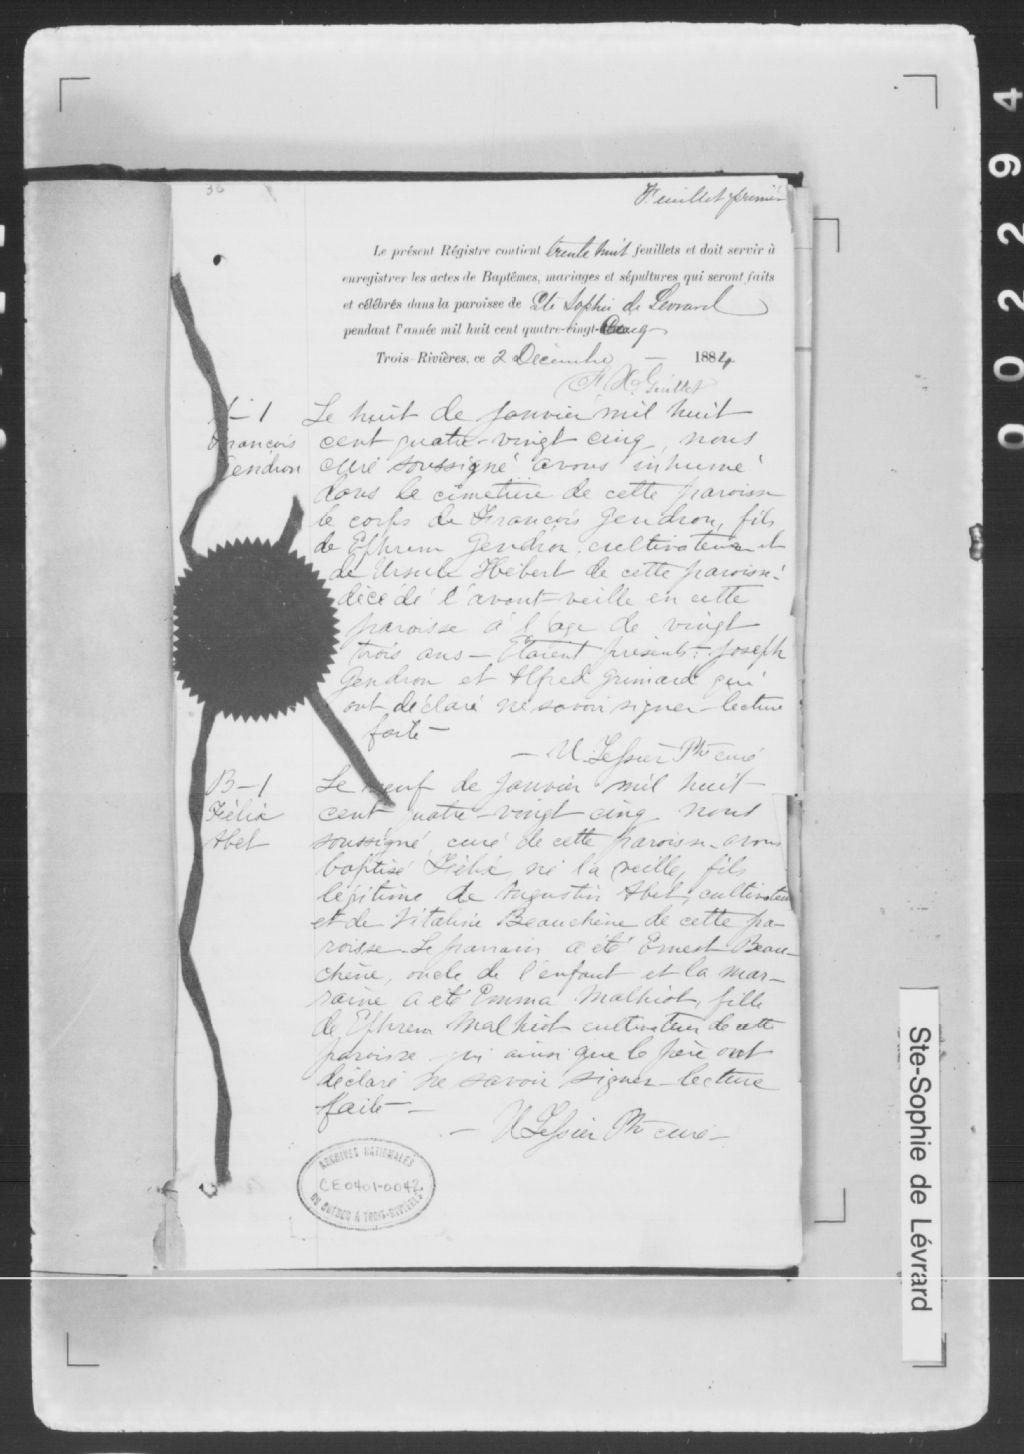 36
Feuillet premier
Le présent Régistre contient trente huit feuillets et doit servir à
enregistrer les actes de Baptêmes, mariages et sépultures qui seront faits
et célébrés dans la paroisse de Ste Sophie de Levrard
pendant l'année mil huit cent quatre-vingt-Cinq
Trois-Rivières, ce 2 Décembre — 1884
Guillet
S-1
François
Gendron
Le huit de Janvier mil huit
cent quatre-vingt cinq, nous
curé soussigné avons inhumé
dans le cimetière de cette paroisse
le corps de François Gendron, fils
de Ephrem Gendron, cultivateur et
de Ursule Hébert de cette paroisse
décédé l'avant-veille en cette
paroisse à l'age de vingt
trois ans - Etaient présents: Joseph
Gendron et Alfred Grimard qui
ont déclaré ne savoir signer - lecture
faite -
— U. Tessier Ptre curé
B-1
Félix
Abel
Le neuf de Janvier mil huit
cent quatre-vingt cinq nous
soussigné, curé de cette paroisse avons
baptisé Félix, né la veille, fils
légitime de Augustin Abel, cultivateur
et de Vitaline Beauchêne de cette pa-
roisse. Le parrain a été Ernest Beau-
chêne, oncle de l'enfant et la mar-
raine a été Emma Malhiot, fille
de Ephrem Malhiot cultivateur de cette
paroisse qui ainsi que le père ont
déclaré ne savoir signer - lecture
faite -
— U Tessier Ptre curé -
ARCHIVES NATIONALES
CE0401-0042
DU QUÉBEC À TROIS-RIVIÈRES
Ste-Sophie de Lévrard
00 2294